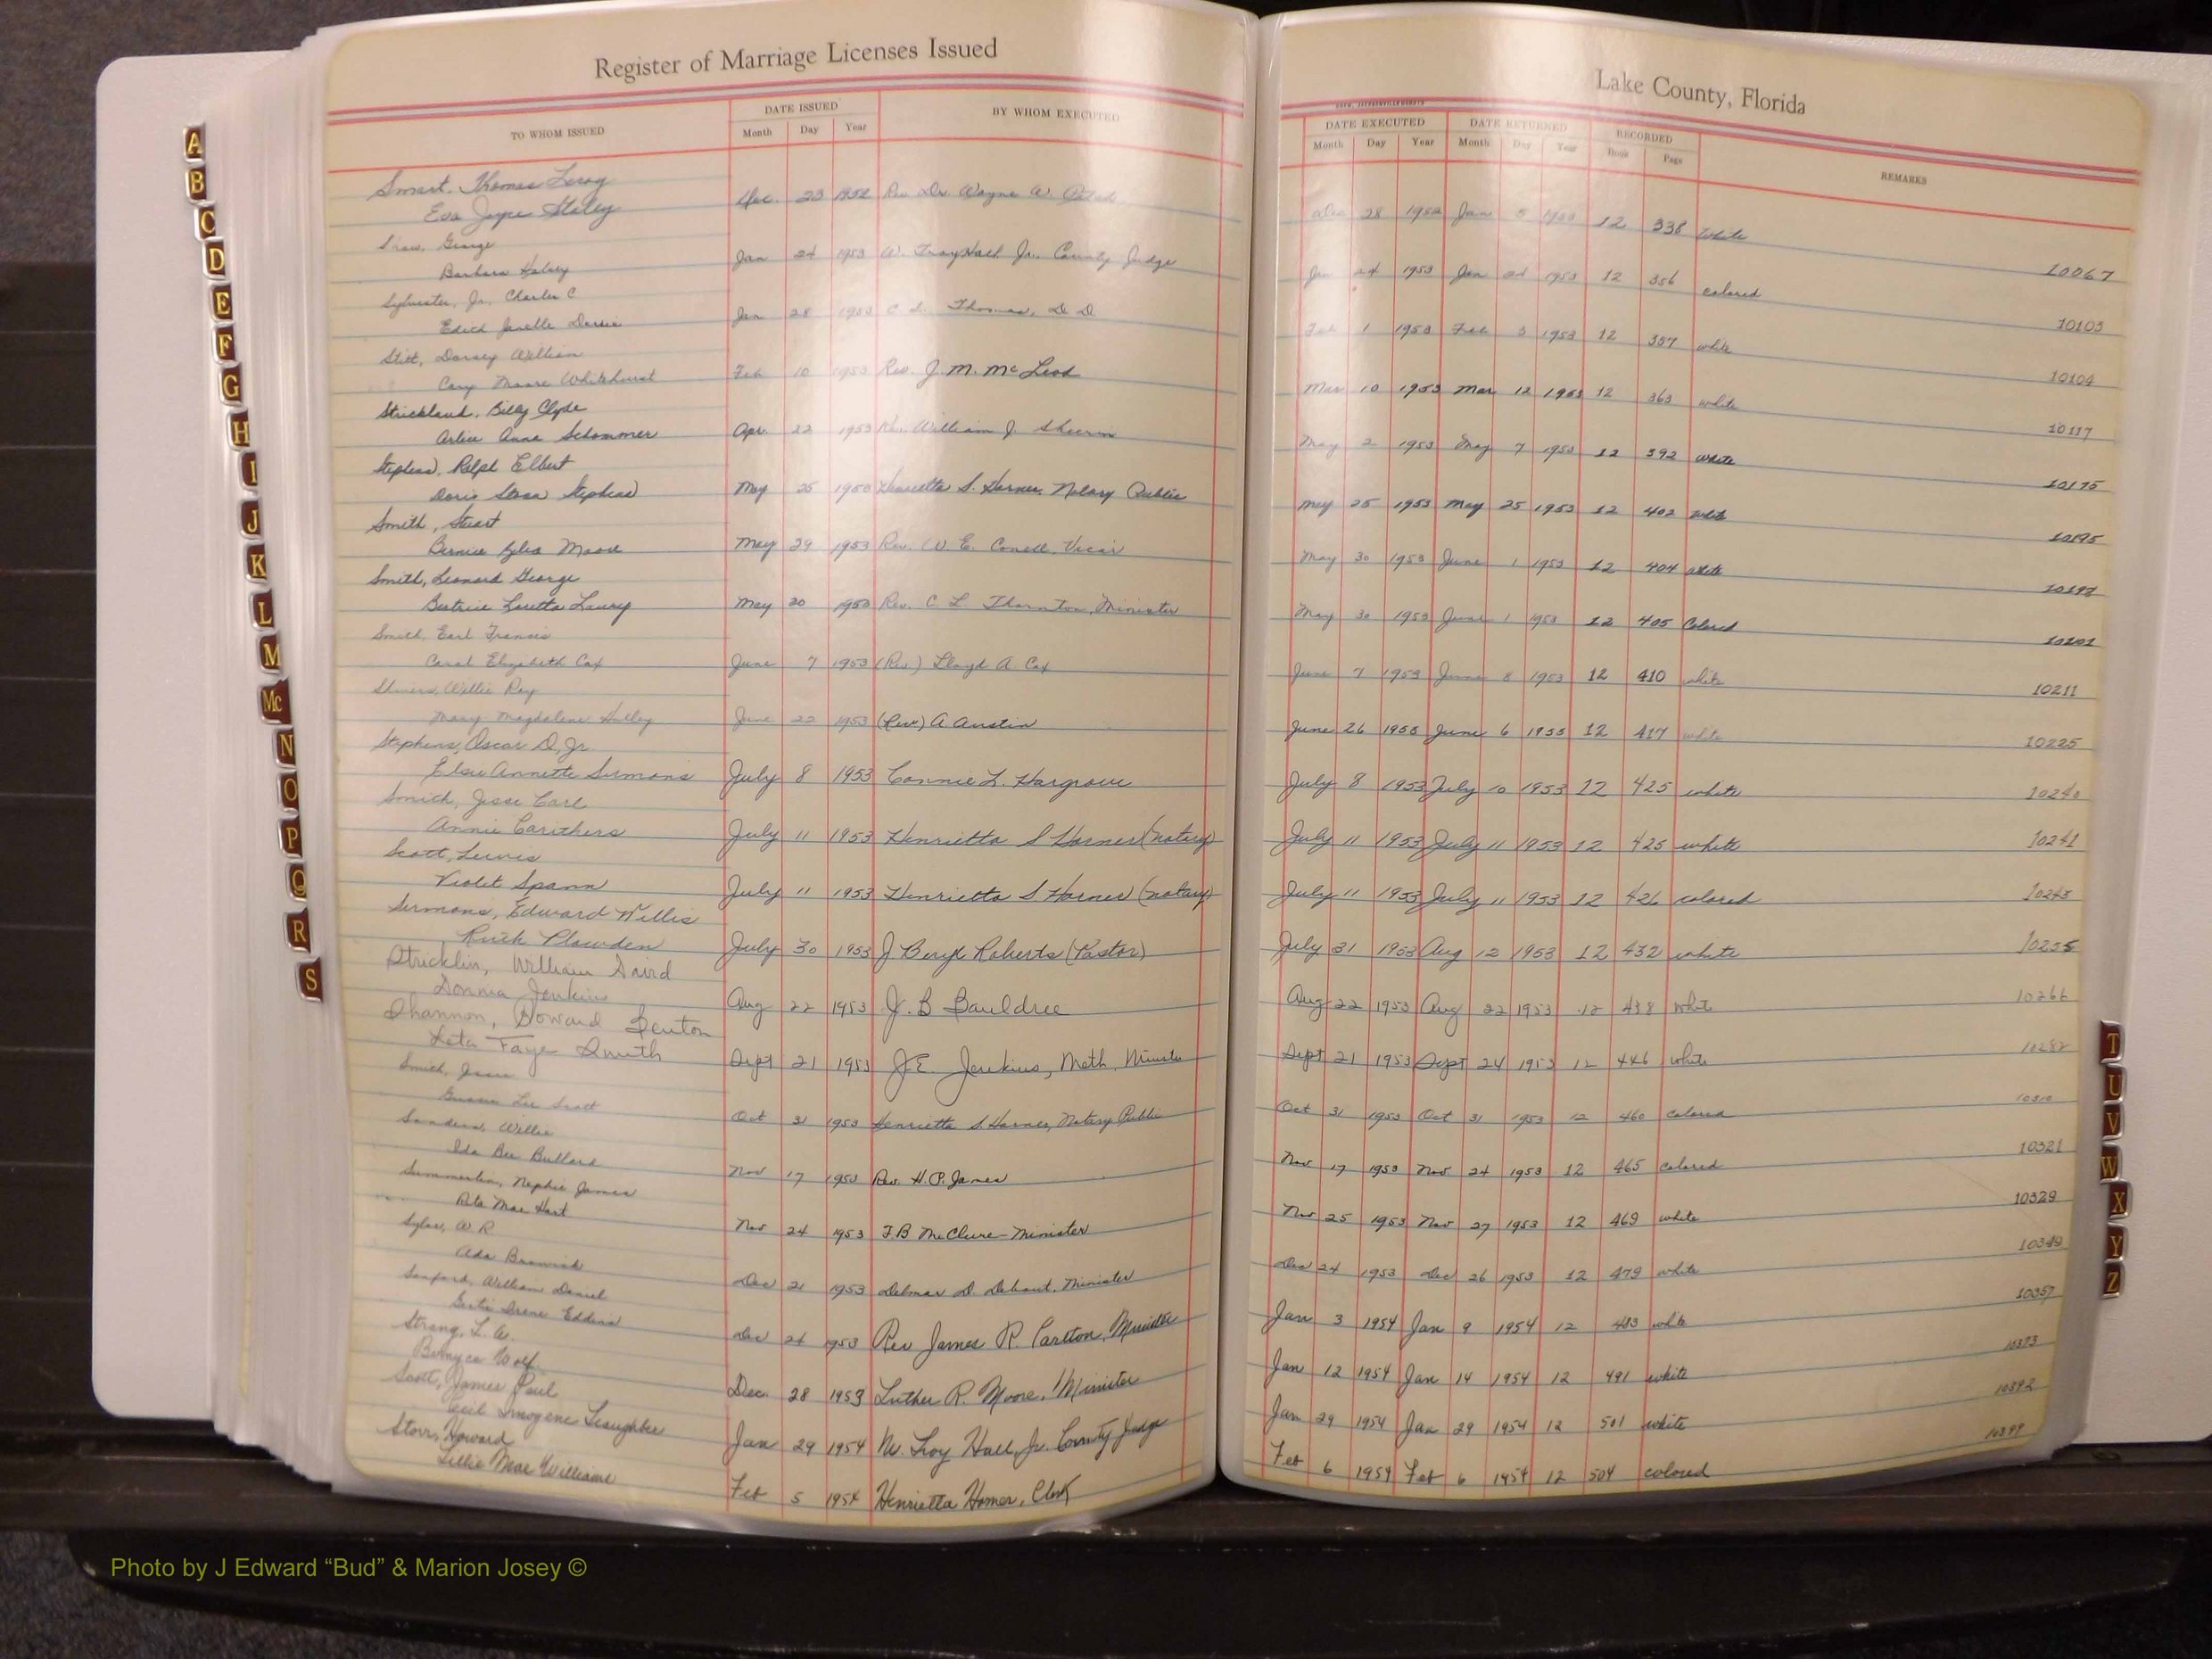 Register of Marriage Licenses Issued
Lake County, Florida
TO WHOM ISSUED
DATE ISSUED
Month Day Year
BY WHOM EXECUTED
DATE EXECUTED
Month Day Year
DATE RETURNED
Month Day Year
RECORDED
Book Page
REMARKS
Smart, Thomas Leroy
Eva Joyce Staley
Dec. 23 1952 Rev Dr. Wayne W.
Dec 28 1952 Jan 5 1953 12 338 white
10067
Shaw, George
Barbara Halsey
Jan 24 1953 W. Troy Hall Jr., County Judge
Jan 24 1953 Jan 24 1953 12 356 colored
10103
Sylvester, Jr., Charles C
Edith Jenelle
Jan 28 1953 C L Thomas, D D
Feb 1 1953 Feb 3 1953 12 357 white
10104
Stitt, Dorsey William
Cary Moore Whitehurst
Feb 10 1953 Rev. J. M. McLeod
Mar 10 1953 Mar 12 1953 12 363 white
10117
Strickland, Billy Clyde
Arlice Anna Schommer
Apr. 22 1953 Rev. William J.
May 2 1953 May 7 1953 12 392 white
10175
Stephens, Ralph Elbert
Doris Stephens
May 25 1953 Henrietta S. Harner, Notary Public
May 25 1953 May 25 1953 12 402 white
10195
Smith, Stuart
Bernice Moore
May 29 1953 Rev. W. E. Vicar
May 30 1953 June 1 1953 12 404 white
Smith, Leonard George
Beatrice Loretta Laury
May 20 1953 Rev. C. L Thornton, Minister
May 30 1953 June 1 1953 12 405 Colored
10201
Smith, Earl Francis
Carol Elizabeth Cox
June 7 1953 (Rev.) Lloyd A Cox
June 7 1953 June 8 1953 12 410 white
10211
Willie Ray
Mary Magdalene
June 22 1953 (Rev) A Austin
June 26 1953 June 6 1953 12 417 white
10225
Stephens, Oscar D, Jr.
Elsie Annette Sermons
July 8 1953 Connie L. Hargrove
July 8 1953 July 10 1953 12 425 white
10240
Smith, Jesse Carl
Annie Carithers
July 11 1953 Henrietta S Harner (notary)
July 11 1953 July 11 1953 12 425 white
10241
Scott, Lewis
Violet Spann
July 11 1953 Henrietta S Harner (notary)
July 11 1953 July 11 1953 12 426 colored
10245
Sermons, Edward Willis
Ruth Plowden
July 30 1953 J Beryl Roberts (Pastor)
July 31 1953 Aug 12 1953 12 432 white
10255
Stricklin, William
Donna Jenkins
Aug 22 1953 J. B Bauldree
Aug 22 1953 Aug 22 1953 12 438 white
10266
Shannon, Howard Benton
Leta Faye Smith
Sept 21 1953 J. E. Jenkins, Meth. Minister
Sept 21 1953 Sept 24 1953 12 446 white
10282
Smith, Jesse
Lee Scott
Oct 31 1953 Henrietta S. Harner, Notary Public
Oct 31 1953 Oct 31 1953 12 460 colored
10310
Sanders, Willie
Ida Bee Bullard
Nov 17 1953 Rev. H. P. James
Nov 17 1953 Nov 24 1953 12 465 colored
10321
Summerlin, Nephie James
Rita Mae Hart
Nov 24 1953 F. B McClure - Minister
Nov 25 1953 Nov 27 1953 12 469 white
10329
W. R
Ada
Dec 21 1953 Delmas D. Minister
Dec 24 1953 Dec 26 1953 12 479 white
10349
Sanford, William Daniel
Irene Eddins
Dec 24 1953 Rev James R. Carlton, Minister
Jan 3 1954 Jan 9 1954 12 483 white
10357
Strang, L. A.
Bernyce Wolf
Dec. 28 1953 Luther R. Moore, Minister
Jan 12 1954 Jan 14 1954 12 491 white
10373
Scott, James Paul
Cecil Imogene Slaughter
Jan 29 1954 W. Troy Hall, Jr. County Judge
Jan 29 1954 Jan 29 1954 12 501 white
10392
Storr, Howard
Lillie Mae Williams
Feb 5 1954 Henrietta Harner, Clerk
Feb 6 1954 Feb 6 1954 12 504 colored
10399
A
B
C
D
E
F
G
H
I
J
K
L
M
Mc
N
O
P
Q
R
S
T
U
V
W
X
Y
Z
Photo by J Edward “Bud” & Marion Josey ©